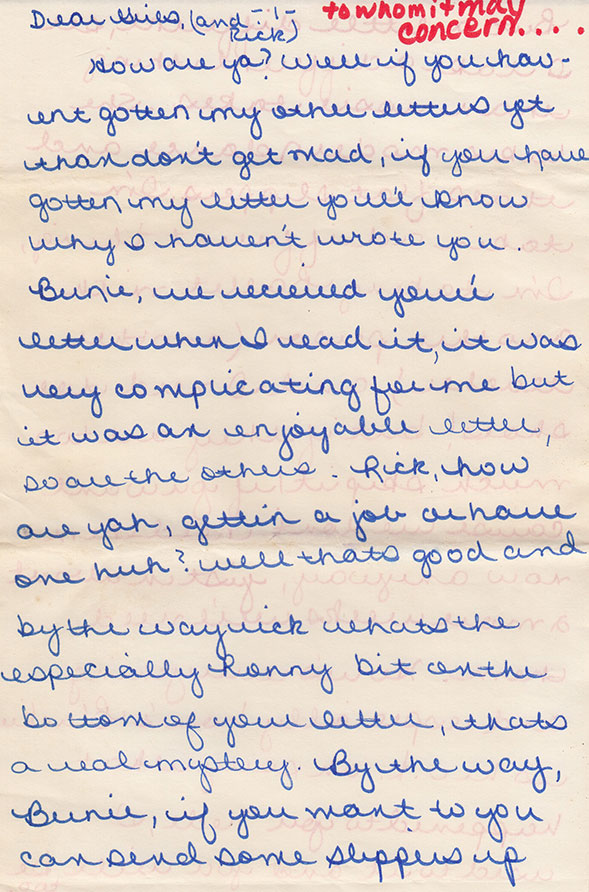 Dear Girls, (and -!-
Rick)
to whom it may
concern....
How are ya? Well if you hav-
ent gotten my other letters yet
than don't get mad, if you have
gotten my letter you'll know
why I haven't wrote you.
Bunie, we recieved your
letter when I read it, it was
very complicating for me but
it was an enjoyable letter,
so are the others. Rick, how
are yah, gettin a job or have
one huh? well thats good and
by the way rick whats the
especially Ronny bit on the
bottom of your letter, thats
a real mystery. By the way,
Bunie, if you want to you
can send some slippers up